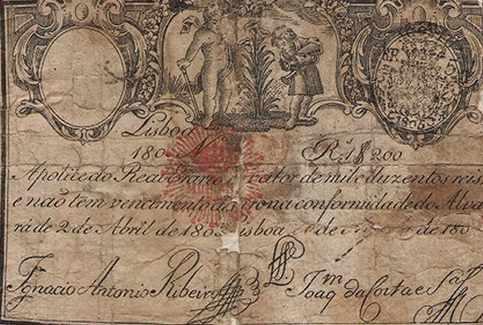 Lisboa
180 Nº Rˢ. 1$200
Apolice do Real Erario valor de mil e duzentos reis,
e não tem vencimento de juro na conformidade do Alva
rá de 2 de Abril de 180 Lisboa de de 180
Ignacio Antonio Ribeiro Joaqᵐ da Costa e Sᵃ